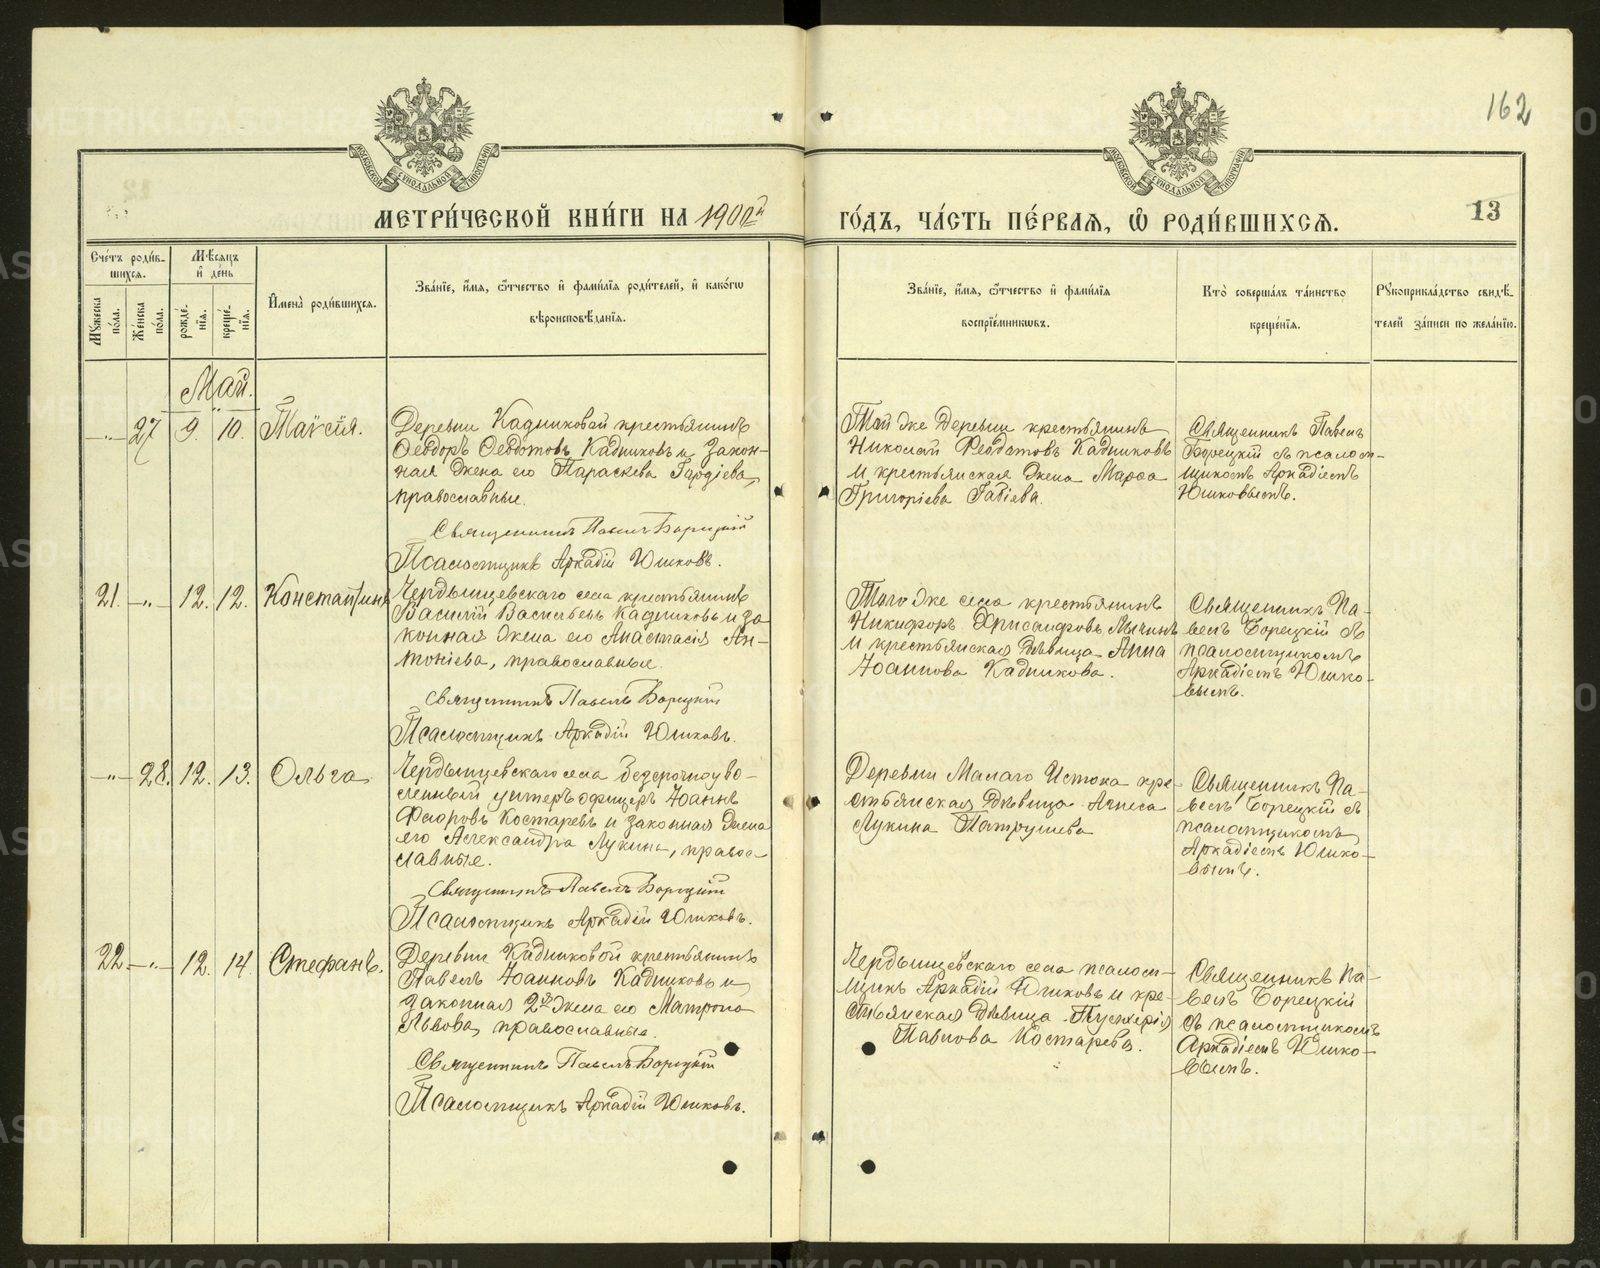 162
МОСКОВСКОЙ СѴНОДАЛЬНОЙ ТИПОГРАФІИ
МОСКОВСКОЙ СѴНОДАЛЬНОЙ ТИПОГРАФІИ
МЕТРИ́ЧЕСКОЙ КНИ́ГИ НА 1900й
ГО́ДЪ, ЧА́СТЬ ПЕ́РВАѦ, Ѽ РОДИ́ВШИХСѦ.
13
Сче́тъ роди́в-
шихся.
Му́жеска по́ла.
Же́нска по́ла.
Мѣ́сяцъ и де́нь
рожде́-
нія.
креще́-
нія.
И҆мена̀ роди́вшихся.
Зва́нїе, и҆́мя, ѻ҆́тчество и҆ фами́лїя роди́телей, и҆ како́гѡ
вѣроисповѣ́данїя.
Зва́нїе, и҆́мя, ѻ҆́тчество и҆ фами́лїя
воспрїе́мникѡвъ.
Кто̀ соверша́лъ та́инство
креще́нїя.
Рꙋкоприкла́дство свидѣ́-
телей за́писи по жела́нїю.
Май.
—„— 27 9. 10. Таисія.
Деревни Кадниковой крестьянинъ
Ѳеодоръ Ѳеодотовъ Кадниковъ и закон-
ная жена его Параскева Гордіева,
православные.
Священникъ Павелъ Борецкій
Псаломщикъ Аркадій Юшковъ.
Той же деревни крестьянинъ
Николай Ѳеодотовъ Кадниковъ
и крестьянская жена Марѳа
Григоріева
Священникъ Павелъ
Борецкій съ псалом-
щикомъ Аркадіемъ
Юшковымъ.
21. —„— 12. 12. Константинъ
Чердынцевскаго села крестьянинъ
Василій Васильевъ Кадниковъ и за
конная жена его Анастасія Ан-
тоніева, православные.
Священникъ Павелъ Борецкій
Псаломщикъ Аркадій Юшковъ.
Того же села крестьянинъ
Никифоръ Хрисанфовъ
и крестьянская дѣвица Анна
Іоаннова Кадникова.
Священникъ Па-
велъ Борецкій съ
псаломщикомъ
Аркадіемъ Юшко-
вымъ.
—„— 28. 12. 13. Ольга
Чердынцевскаго села безсрочноуво-
ленный унтеръ офицеръ Іоаннъ
Флоровъ Костаревъ и законная жена
его Александра Лукина, право-
славные.
Священникъ Павелъ Борецкій
Псаломщикъ Аркадій Юшковъ.
Деревни Малаго Истока кре-
стьянская дѣвица
Лукина Патрушева
Священникъ Па-
велъ Борецкій съ
псаломщикомъ
Аркадіемъ Юшко-
вымъ.
22 —„— 12. 14. Стефанъ.
Деревни Кадниковой крестьянинъ
Павелъ Іоанновъ Кадниковъ и
законная 2я жена его Матрона
Львова, православные.
Священникъ Павелъ Борецкій
Псаломщикъ Аркадій Юшковъ.
Чердынцевскаго села псалом-
щикъ Аркадій Юшковъ и кре-
стьянская дѣвица Пульхерія
Павлова Костарева.
Священникъ Па-
велъ Борецкій
съ псаломщикомъ
Аркадіемъ Юшко-
вымъ.